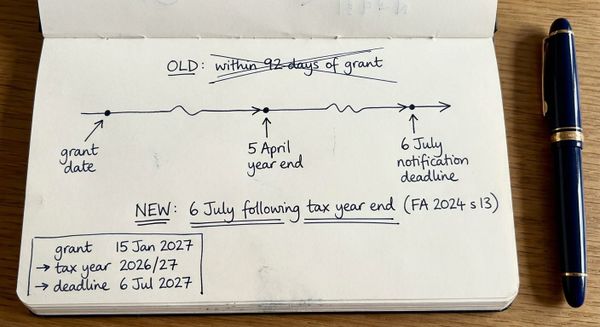 OLD: within 92 days of grant
grant
date
5 April
year end
6 July
notification
deadline
NEW: 6 July following tax year end (FA 2024 s 13)
grant 15 Jan 2027
→ tax year 2026/27
→ deadline 6 Jul 2027